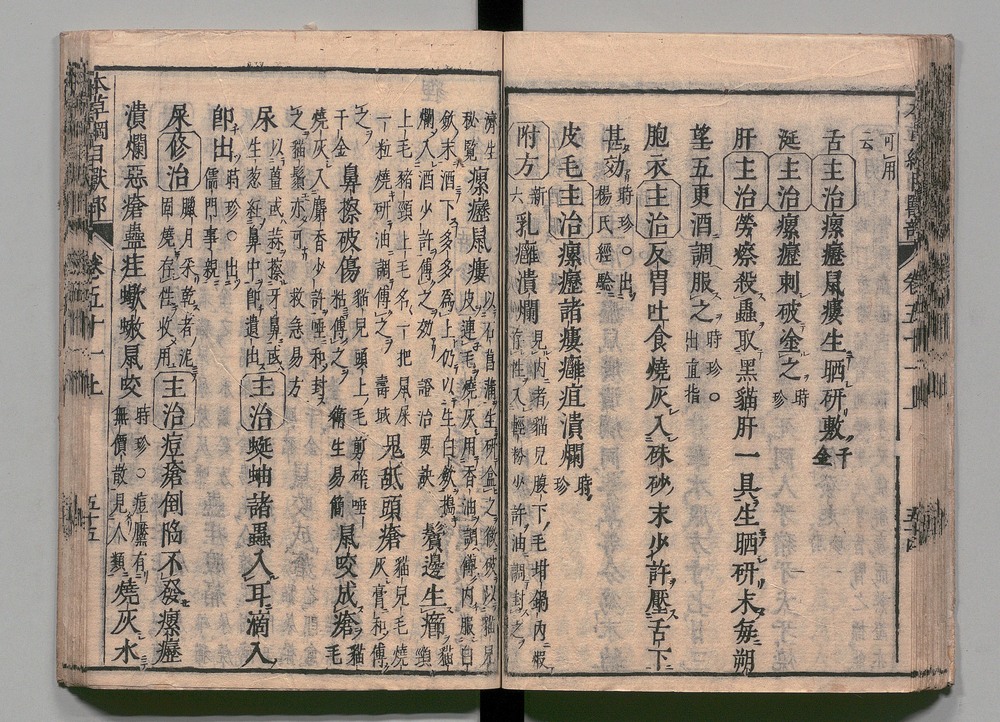 可用
云
舌主治瘰癧鼠瘻生晒研敷千金
涎主治瘰癧刺破塗之時珍
肝主治勞瘵殺蟲取黑貓肝一具生晒研末每朔
望五更酒調服之時珍○出直指
胞衣主治反胃吐食燒灰入硃砂末少許壓舌下
甚効時珍○出楊氏經驗
皮毛主治瘰癧諸瘻癰疽潰爛時珍
附方新六乳癰潰爛見內者貓兒腹下毛坩鍋內煅存性入輕粉少許油調封之
濟生秘覽瘰癧鼠瘻以石菖蒲生研盦之微破以貓兒皮連毛燒灰用香油調傅內服白
飲末酒下多多為上仍以生白飲搗爛入酒少許傅之効證治要訣鬢邊生癤貓頸
上毛豬頸上毛各一把鼠屎一粒燒研油調傅之壽域鬼舐頭瘡貓兒毛燒灰膏和傅
之千金鼻擦破傷貓兒頭上毛剪碎唾粘傅之衛生易簡鼠咬成瘡貓毛
燒灰入麝香少許唾和封之貓鬚亦可救急易方
尿以薑或蒜擦牙鼻或生葱紝鼻中即遺出主治蜒蚰諸蟲入耳滴入
即出時珍○出儒門事親
屎修治臘月采乾者泥固燒存性收用主治痘瘡倒陷不發瘰癧
潰爛惡瘡蠱疰蠍螫鼠咬時珍○痘黶有無價散見人類燒灰水
本草綱目獸部
卷五十一上
五十五